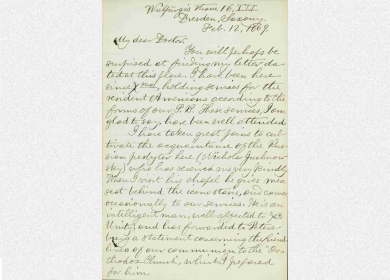 Walpurgis Strasse 16, III
Dresden, Saxony.
Feb. 12, 1869.
My dear Doctor:
You will perhaps be
surprised at finding my letter da-
ted at this place. I have been here
since holding services for the
resident Americans according to the
forms of our P.B. These services, I am
glad to say have been well attended.
I have taken great pains to cul-
tivate the acquaintance of the Rus-
sian presbyter here (Nicholas
) who has received me very kindly.
When I visit his chapel he gives me a
seat behind the iconostasis, and comes
occasionally to our services. He is an
intelligent man, well affected to
Unity; and has forwarded to Peters-
burg a statement concerning the friend-
liness of our communion to the "Or-
thodox Church," which I prepared
for him.